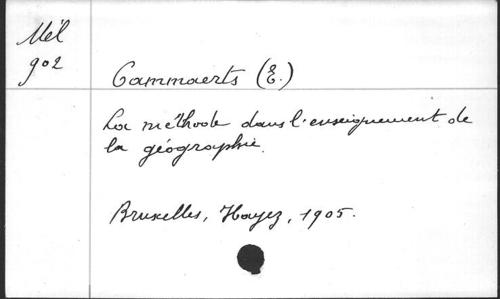 Mél
902
Cammaerts (E.)
La méthode dans l'enseignement de
la géographie.
Bruxelles, Hayez, 1905.